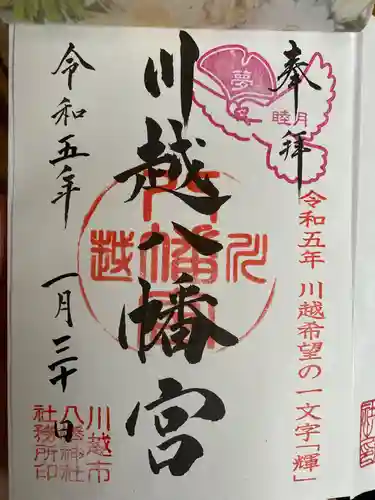 奉拝
夢
睦月
令和五年 川越希望の一文字「輝」
川越八幡宮
令和五年 一月三十日
川越市
八幡神社
社務所印